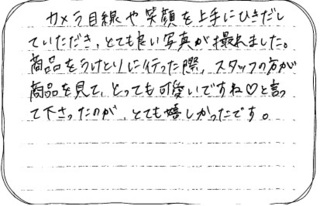 カメラ目線や笑顔を上手にひきだし
ていただき、とても良い写真が撮れました。
商品をうけとりに行った際、スタッフの方が
商品を見て、とっても可愛いですね♡と言っ
て下さったのが、とても嬉しかったです。